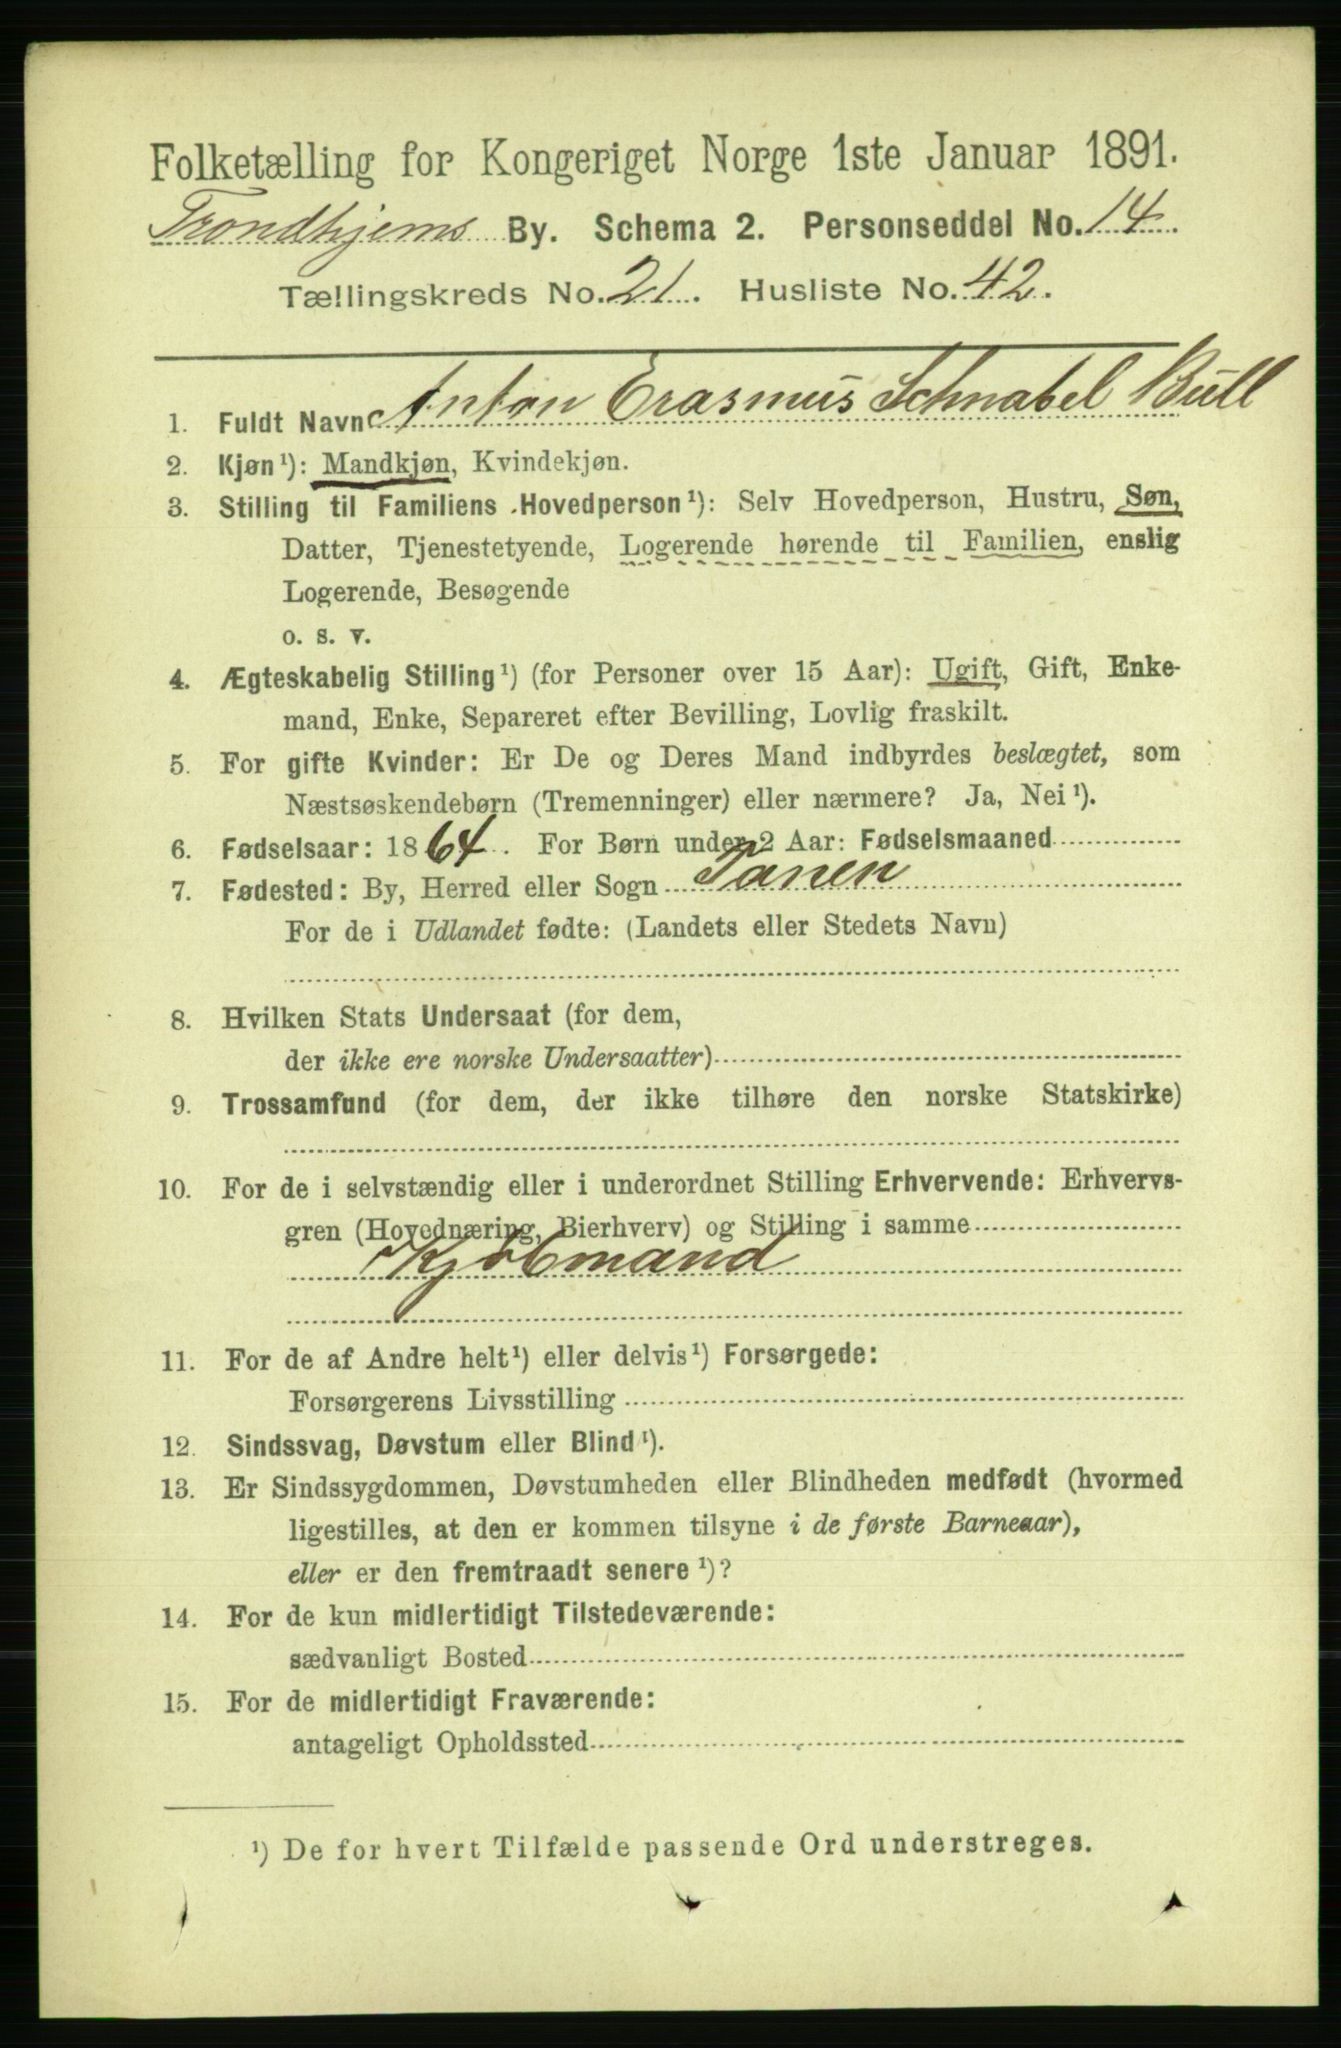 Folketælling for Kongeriget Norge 1ste Januar 1891.
Trondhjems By. Schema 2. Personseddel No. 14.
Tællingskreds No. 21. Husliste No. 42.
1. Fuldt Navn Anton Erasmus Schnabel Bull
2. Kjøn¹): Mandkjøn, Kvindekjøn.
3. Stilling til Familiens Hovedperson¹): Selv Hovedperson, Hustru, Søn,
Datter, Tjenestetyende, Logerende hørende til Familien, enslig
Logerende, Besøgende
o. s. v.
4. Ægteskabelig Stilling¹) (for Personer over 15 Aar): Ugift, Gift, Enke-
mand, Enke, Separeret efter Bevilling, Lovlig fraskilt.
5. For gifte Kvinder: Er De og Deres Mand indbyrdes beslægtet, som
Næstsøskendebørn (Tremenninger) eller nærmere? Ja, Nei¹).
6. Fødselsaar: 1864. For Børn under 2 Aar: Fødselsmaaned
7. Fødested: By, Herred eller Sogn Tanen
For de i Udlandet fødte: (Landets eller Stedets Navn)
8. Hvilken Stats Undersaat (for dem,
der ikke ere norske Undersaatter)
9. Trossamfund (for dem, der ikke tilhøre den norske Statskirke)
10. For de i selvstændig eller i underordnet Stilling Erhvervende: Erhvervs-
gren (Hovednæring, Bierhverv) og Stilling i samme
Kjøbmand
11. For de af Andre helt¹) eller delvis¹) Forsørgede:
Forsørgerens Livsstilling
12. Sindssvag, Døvstum eller Blind¹).
13. Er Sindssygdommen, Døvstumheden eller Blindheden medfødt (hvormed
ligestilles, at den er kommen tilsyne i de første Barneaar),
eller er den fremtraadt senere¹)?
14. For de kun midlertidigt Tilstedeværende:
sædvanligt Bosted
15. For de midlertidigt Fraværende:
antageligt Opholdssted
¹) De for hvert Tilfælde passende Ord understreges.